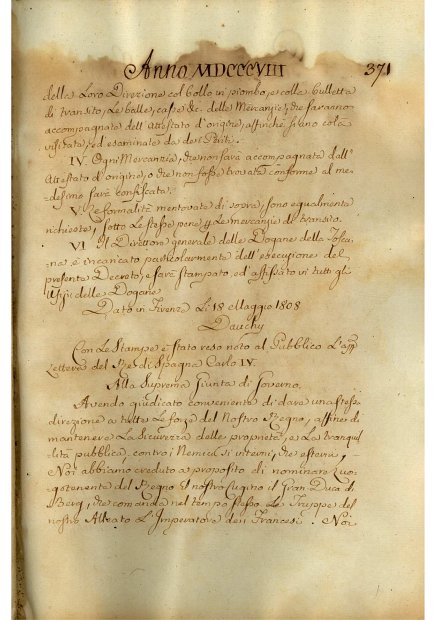 Anno MDCCCVIII 371
della Loro Direzione col bollo in piombo, e colla bulletta
di transito, Le balle, casse &c. delle Mercanzie, che saranno
accompagnate dell'Attestato d'origine, affinchè siano colà
visitate, ed esaminate da dei Periti.
IV. Ogni Mercanzia, che non sarà accompagnata dall'
Attestato d'origine, o che non fosse trovata conforme al me-
desimo sarà confiscata.
V. Le formalità mentovate di sopra, sono egualmente
richieste, sotto Le stesse pene per Le mercanzie di transito.
VI. Il Direttore generale delle Dogane della Tosca-
na è incaricato particolarmente dell'esecuzione del
presente Decreto, e sarà stampato, ed affissato in tutti gli
Ufizi delle Dogane.
Dato in Firenze Li 18 Maggio 1808
Dauchy
Con Le Stampe è stato reso noto al Pubblico L'app.
Lettera del Re di Spagna Carlo IV.
Alla Suprema Giunta di Governo.
Avendo giudicato conveniente di dare una stessa
direzione a tutte Le forze del Nostro Regno, affine di
mantenere La sicurezza delle proprietà, e La tranquil
lità pubblica, contro i Nemici sì interni, che esterni,
Noi abbiamo creduto a proposito di nominare Luo-
gotenente del Regno il nostro Cugino il Gran Duca di
Berg, che comanda nel tempo stesso Le Truppe del
nostro Alleato L'Imperatore dei Francesi. Noi